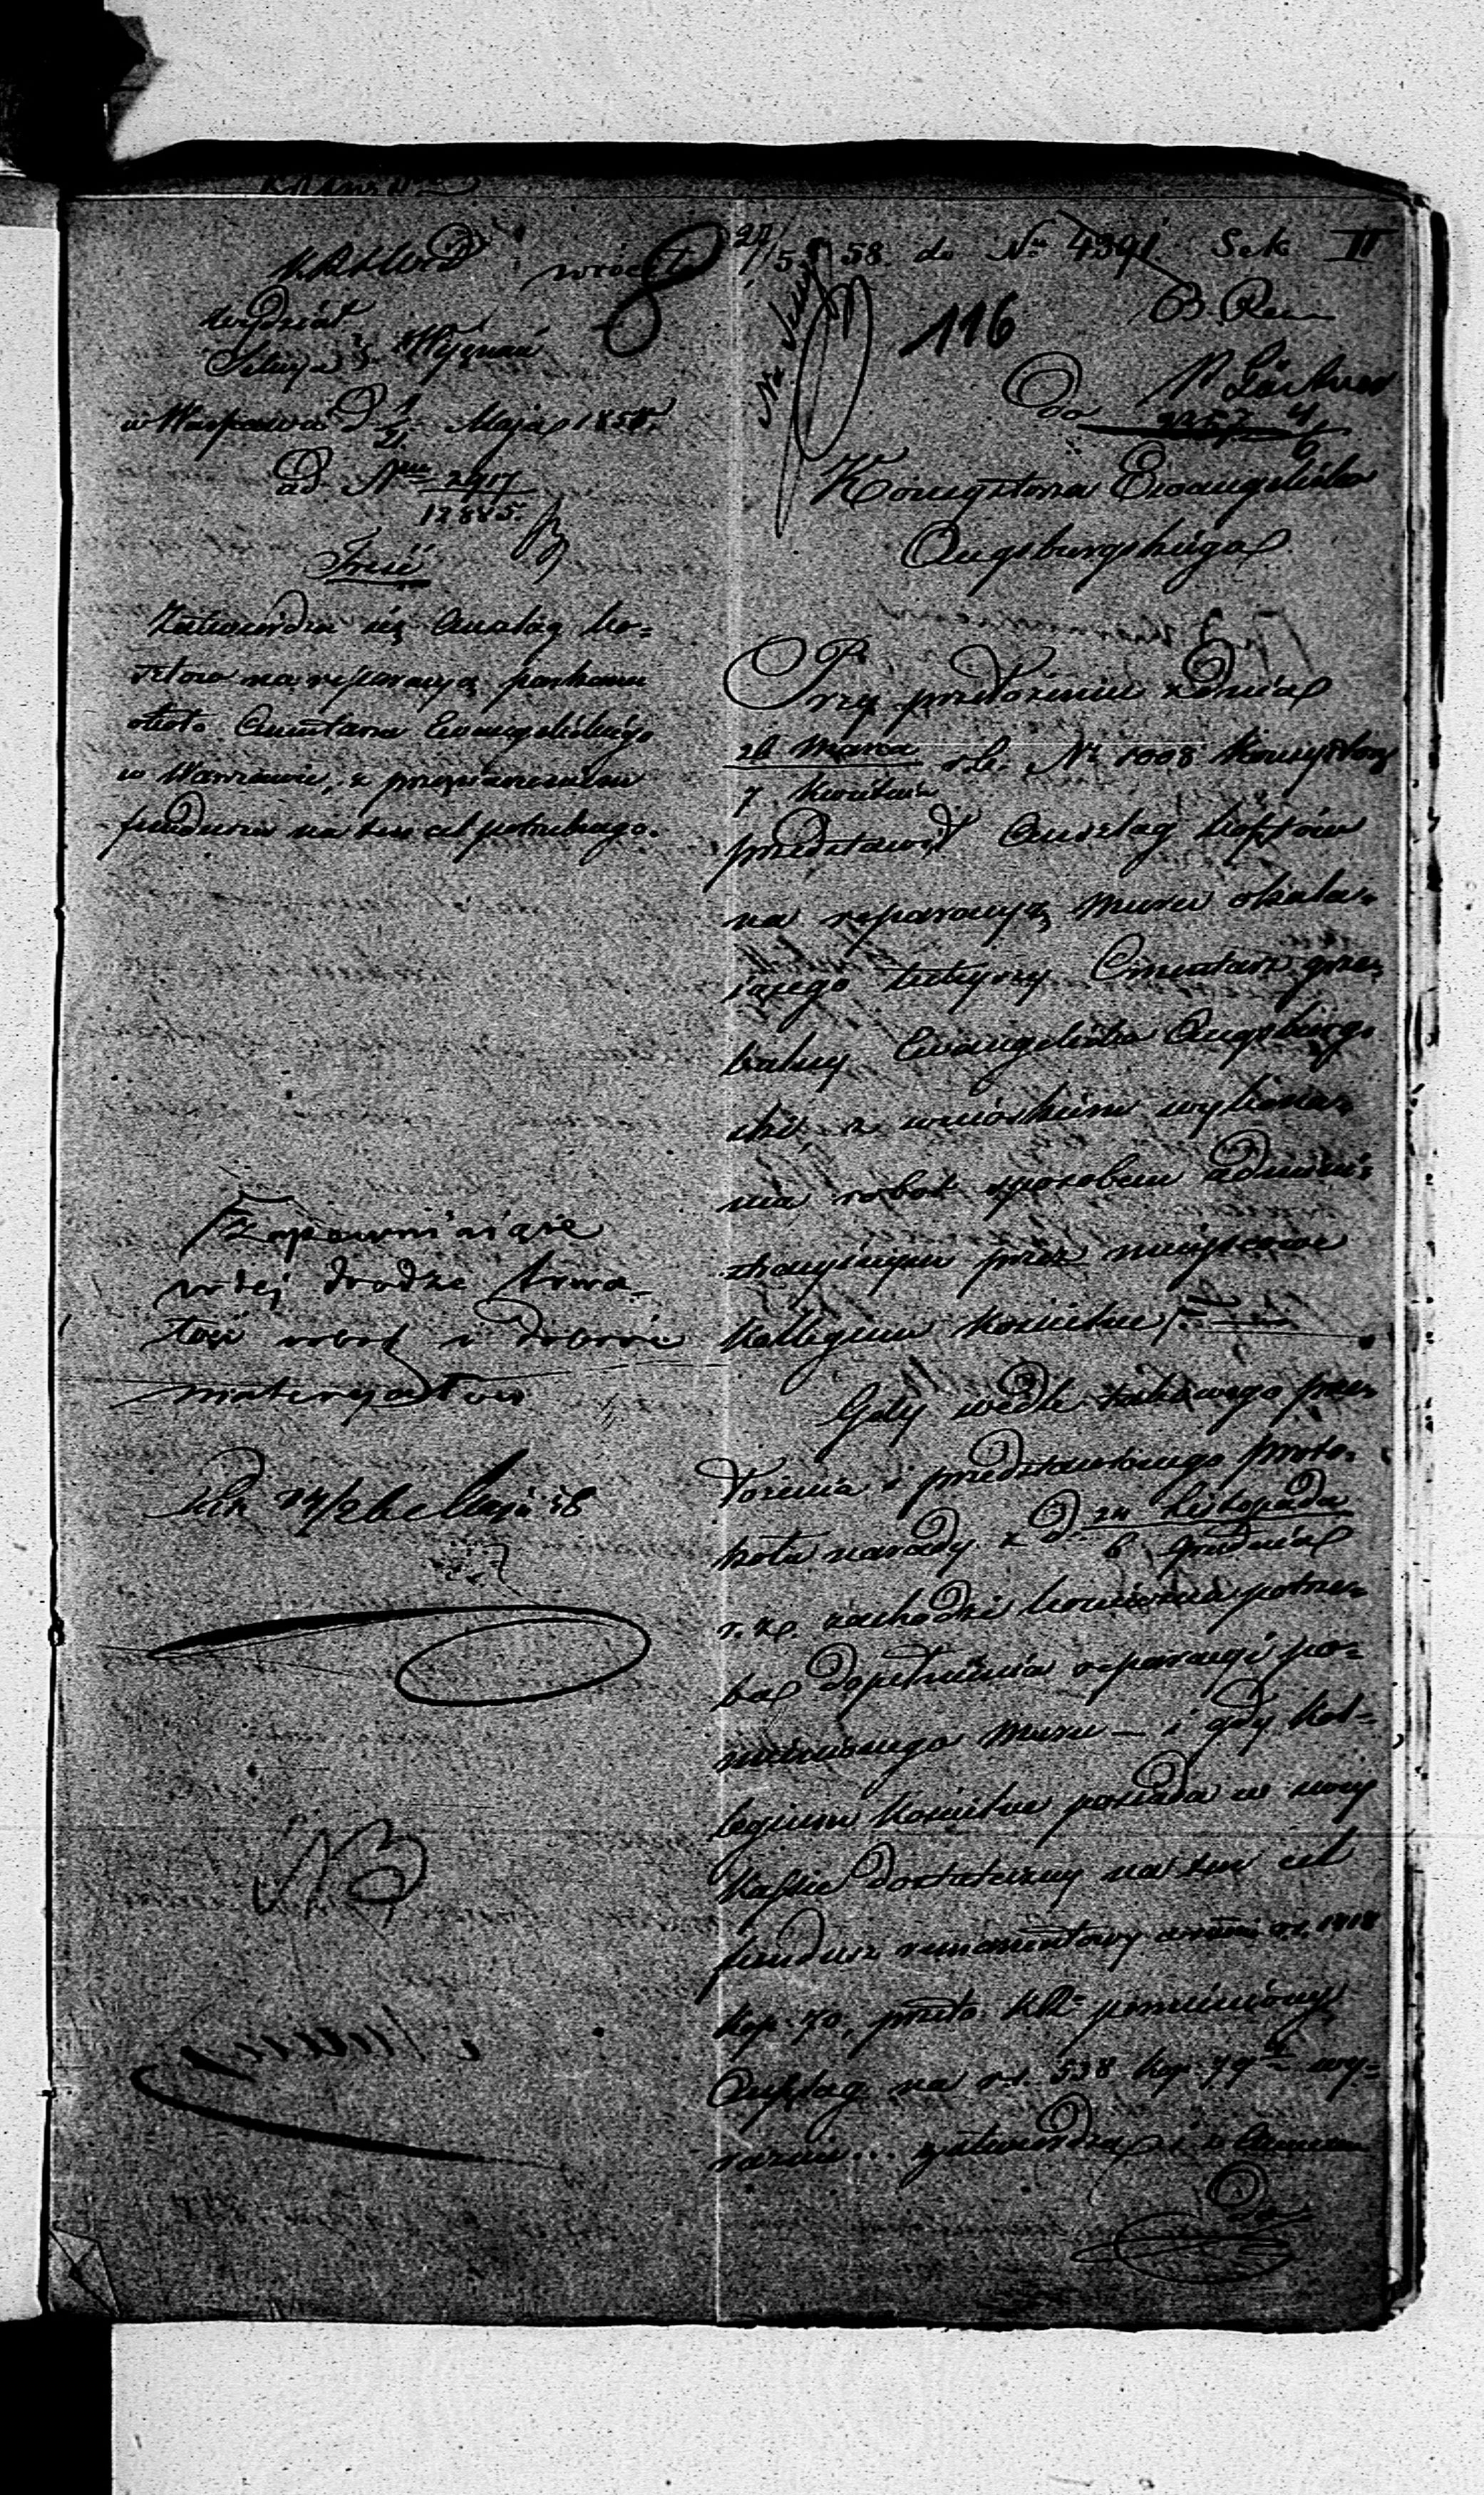 Wydział
Sekcya Wyznań
w Warszawie D. Maja 1858.
ad Nrm 2917
12885.
Treść
Zatwierdza się Anszlag ko=
sztów na reparacyą parkanu
około Cmentarza Ewangelickiego
w Warszawie, z przeznaczeniem
funduszu na ten cel potrzebnego.
zapewniające
w tej drodze trwa-
łość robot i dobroć
materyałów
14/26 Maja 58
NB
wrócił 58. do No 4391 Sek II
116
Do
Konsystorza Ewangelicko
Augsburgskiego
Przy przełożeniu z dnia
26 Marca
7 Kwietnia
r. b. Nr 1008 Konsystorz
przedstawił Anszlag kosztów
na reparacyą muru okala=
iącego tutejszy Cmentarz grze=
balny Ewangelicko Augsburg=
ski, z wnioskiem wykona=
nia robot sposobem admini=
stracyjnym przez miejscowe
Kollegium Kościelne
Gdy wedle takowego prze=
łożenia i przedstawionego proto=
kołu narady z d. 24 Listopada
6 Grudnia
r. z. zachodzi konieczna potrze=
ba dopełnienia reparacyi po=
mienionego muru — i gdy Kol=
legium Kościelne posiada w swej
Kassie dostateczny na ten cel
fundusz remanentowy rs. 1818
kop. 70, przeto KR pomieniony
Anszlag na rs. 538 kop. 79 wy=
raźnie... zatwierdza i